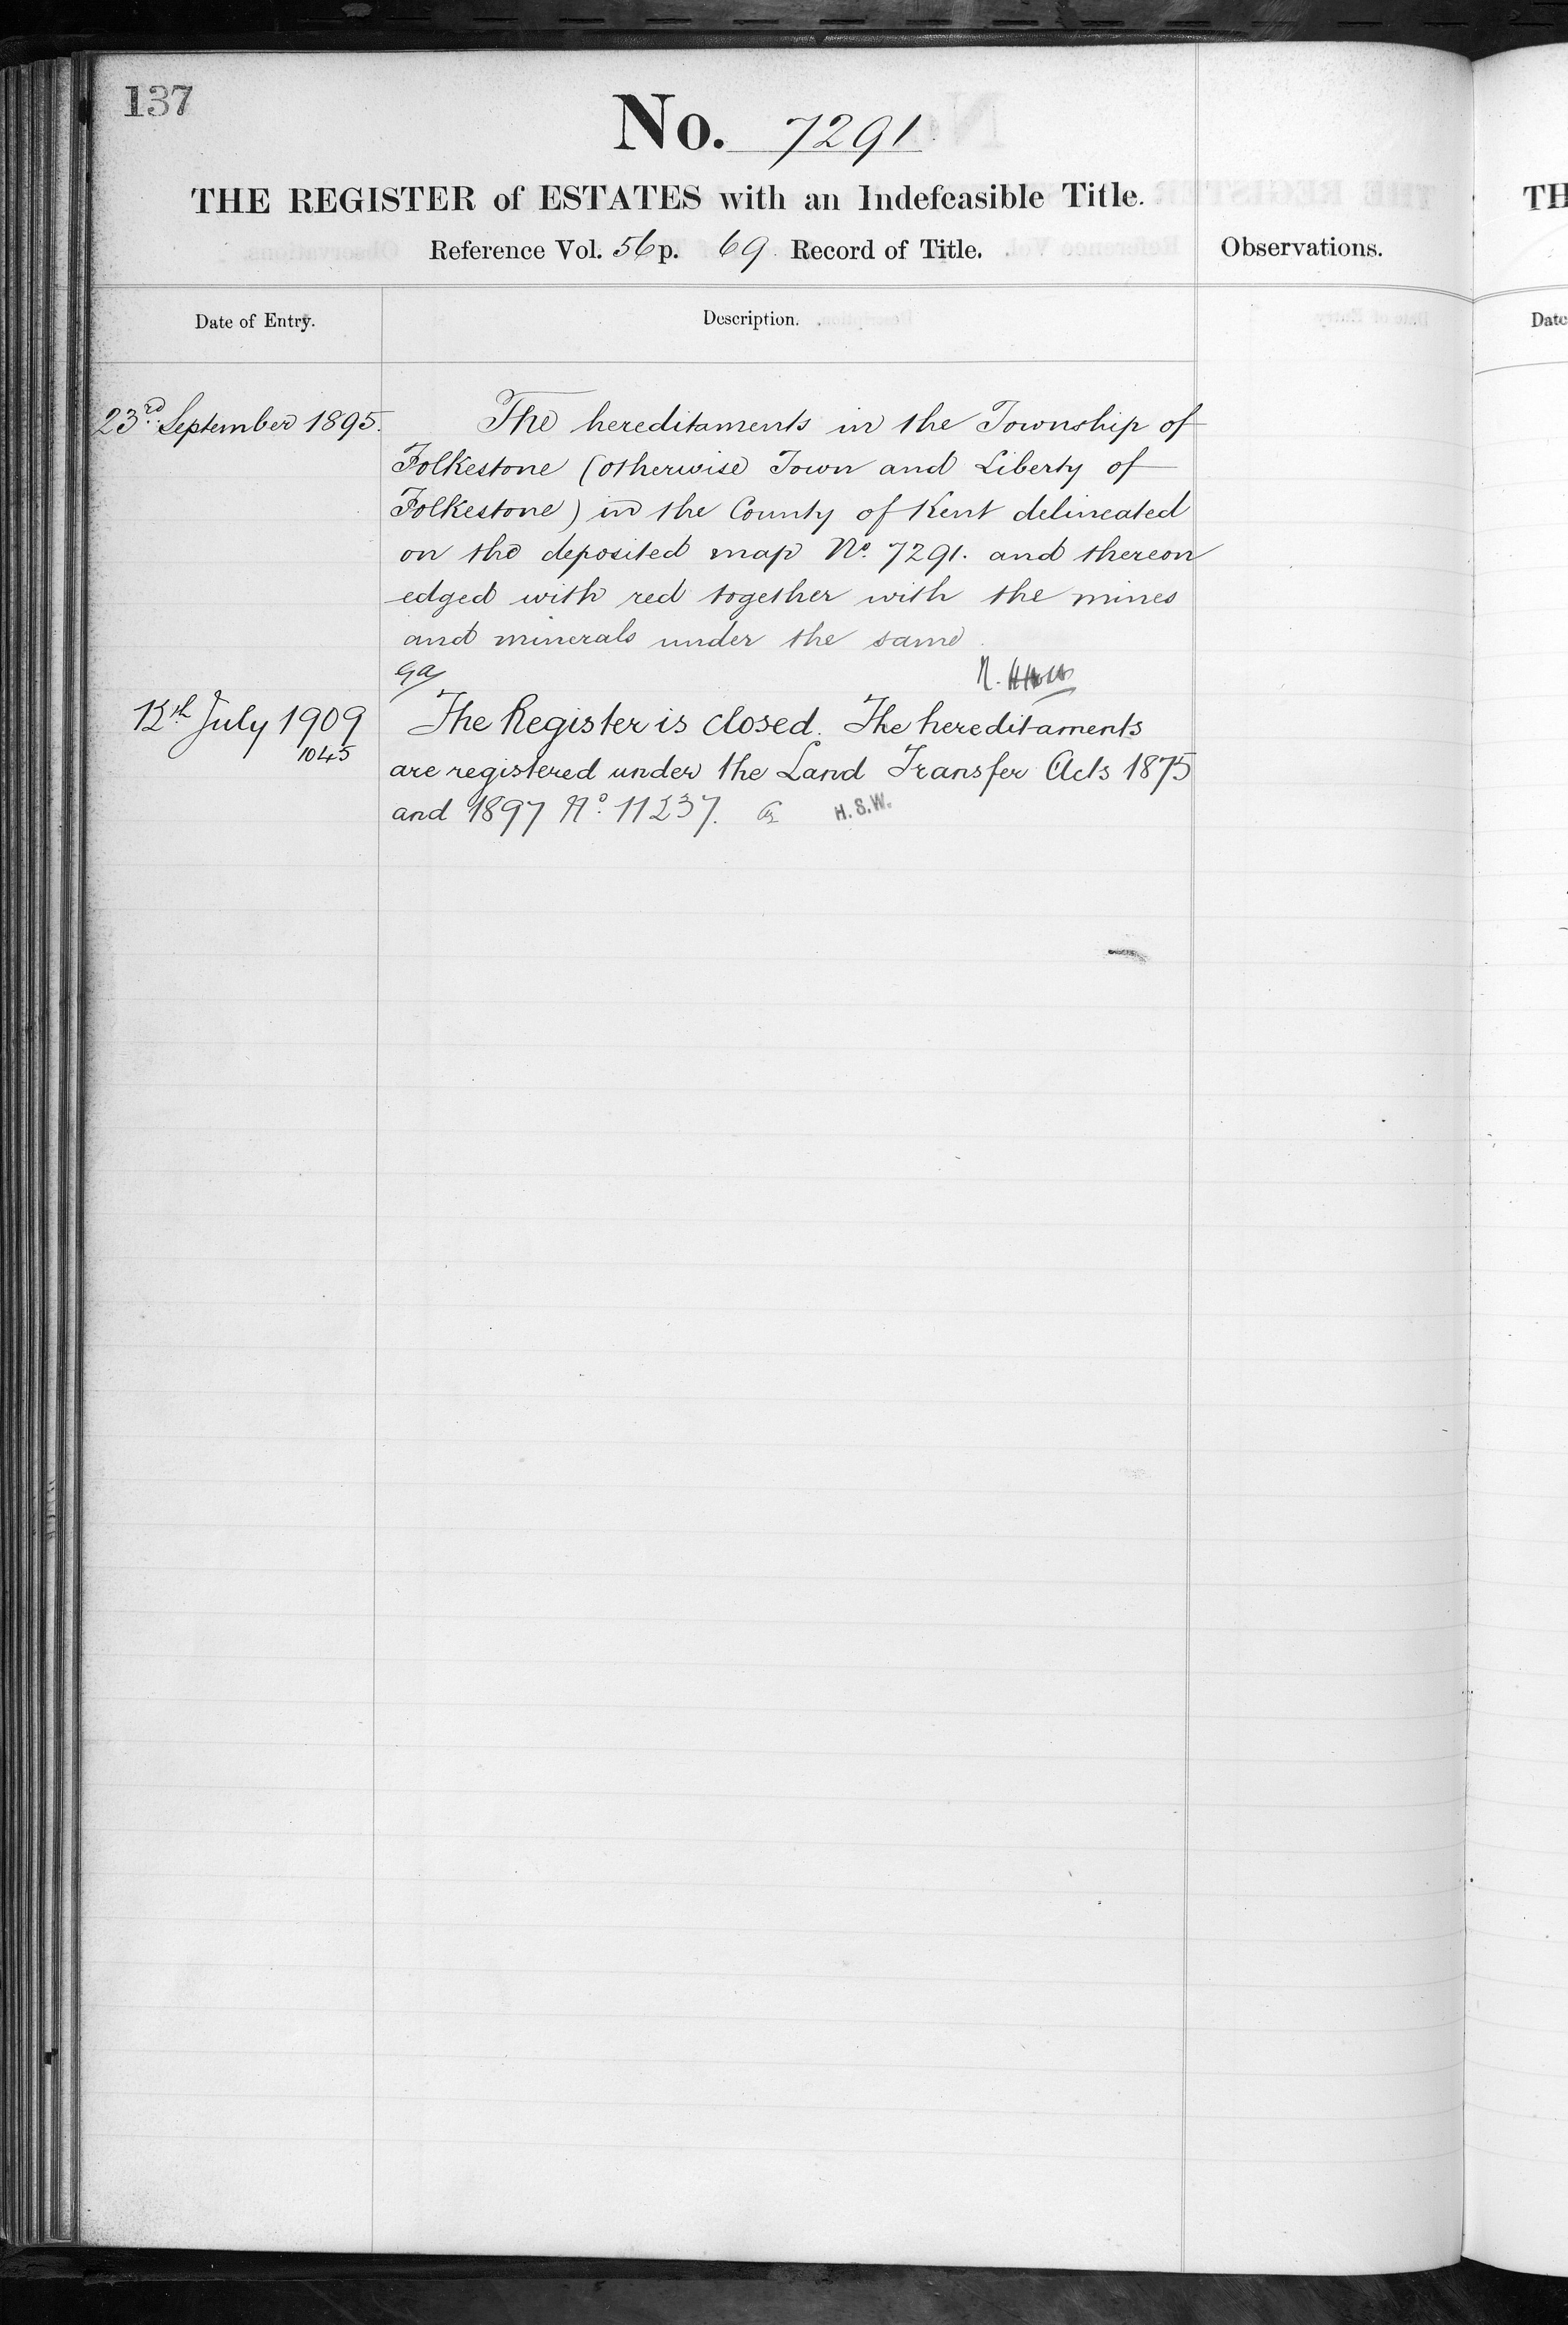 137
No. 7291
THE REGISTER of ESTATES with an Indefeasible Title.
Reference Vol. 56 p. 69 Record of Title.
Observations.
Date of Entry.
Description.
23rd September 1895.
The hereditaments in the Township of
Folkestone (otherwise Town and Liberty of
Folkestone) in the County of Kent delineated
on the deposited map No. 7291. and thereon
edged with red together with the mines
and minerals under the same
12th July 1909
1045
The Register is closed. The hereditaments
are registered under the Land Transfer Acts 1875
and 1897 No. 11237.
H.S.W.
TH
Date